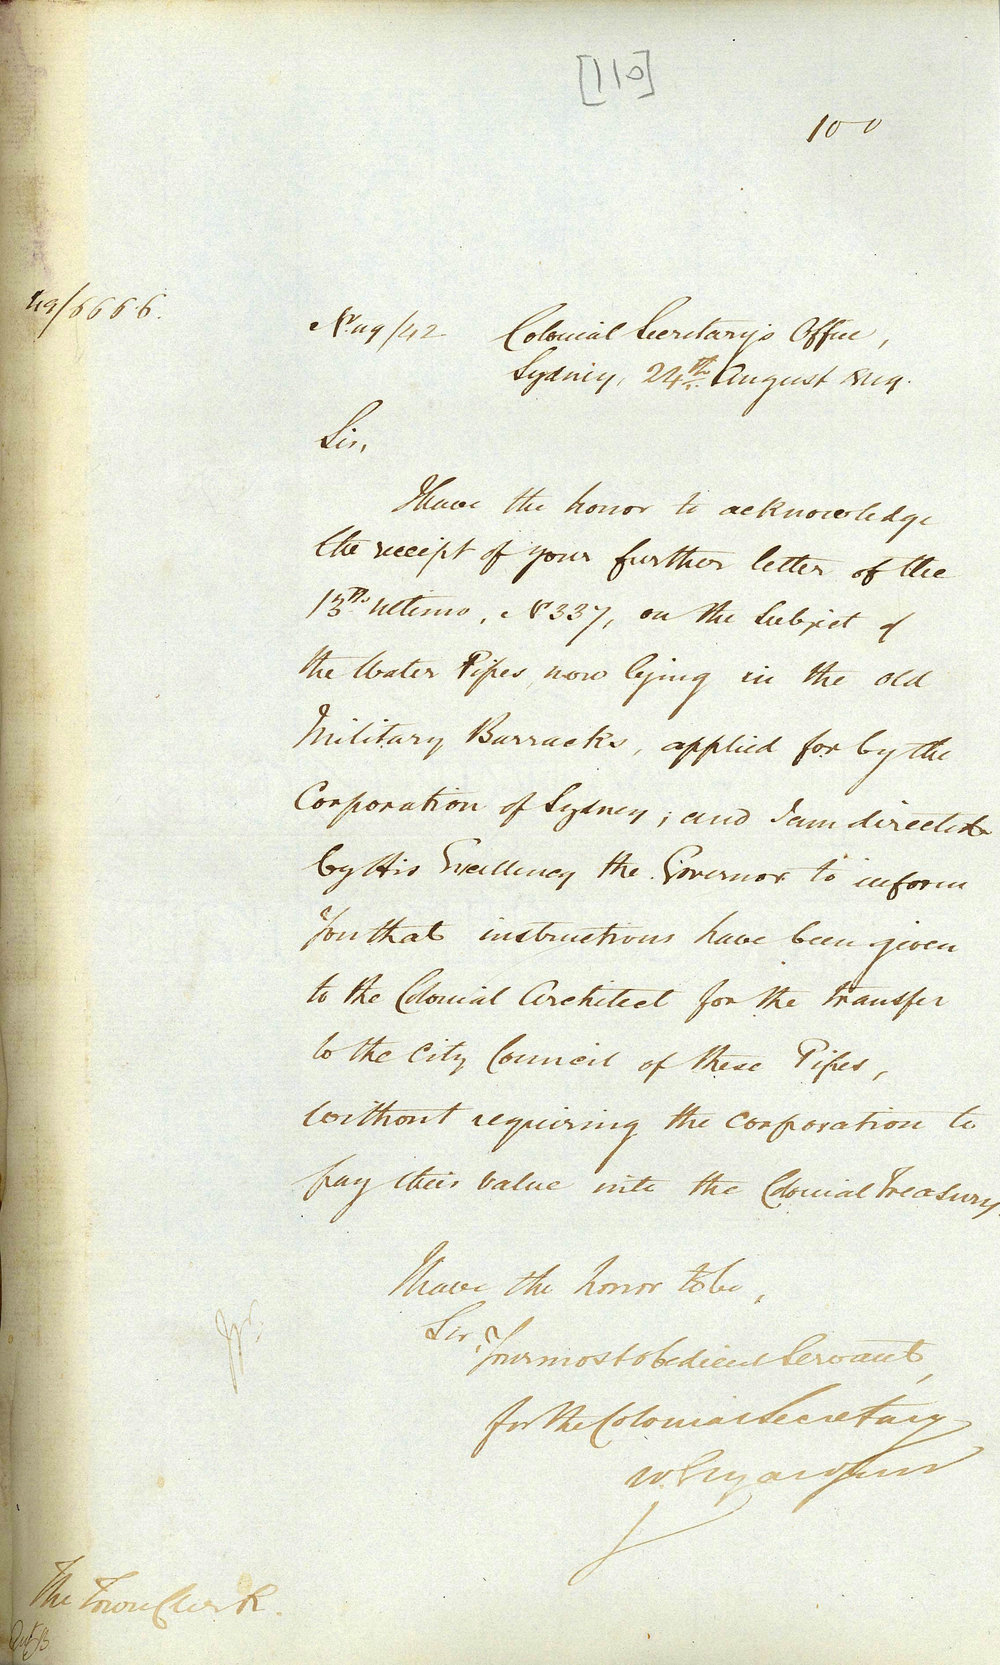 [110]
100
49/6666.
No 49/142 Colonial Secretary's Office,
Sydney, 24th August 1849.
Sir,
I have the honor to acknowledge
the receipt of your further letter of the
13th ultimo, No 337, on the subject of
the Water Pipes now lying in the old
Military Barracks, applied for by the
Corporation of Sydney; and I am directed
by His Excellency the Governor to inform
you that instructions have been given
to the Colonial Architect for the transfer
to the City Council of these Pipes,
without requiring the Corporation to
pay their value into the Colonial Treasury.
I have the honor to be,
Sir,
Your most obedient Servant,
for the Colonial Secretary
W. Elyard Junr
The Town Clerk.